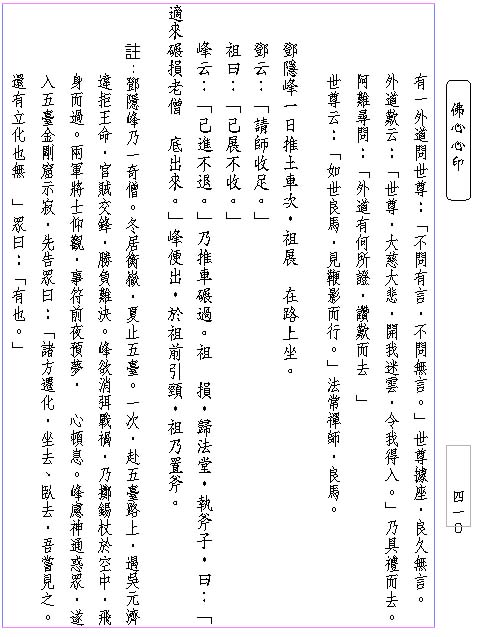 佛心心印
有一外道問世尊：「不問有言，不問無言。」世尊據座，良久無言。
外道歎云：「世尊，大慈大悲，開我迷雲，令我得入。」乃具禮而去。
阿難尋問：「外道有何所證，讚歎而去　」
世尊云：「如世良馬，見鞭影而行。」法常禪師，良馬。
鄧隱峰一日推土車次，祖展　在路上坐。
鄧云：「請師收足。」
祖曰：「已展不收。」
峰云：「已進不退。」乃推車碾過。祖　損，歸法堂，執斧子，曰：「
適來碾損老僧　底出來。」峰便出，於祖前引頸，祖乃置斧。
註：鄧隱峰乃一奇僧。冬居衡嶽，夏止五臺。一次，赴五臺路上，遇吳元濟
違拒王命，官賊交鋒，勝負難決。峰欲消弭戰禍，乃擲錫杖於空中，飛
身而過。兩軍將士仰觀，事符前夜預夢，　心頓息。峰慮神通惑眾，遂
入五臺金剛窟示寂，先告眾曰：「諸方遷化，坐去、臥去，吾嘗見之。
還有立化也無　」眾曰：「有也。」
四一○